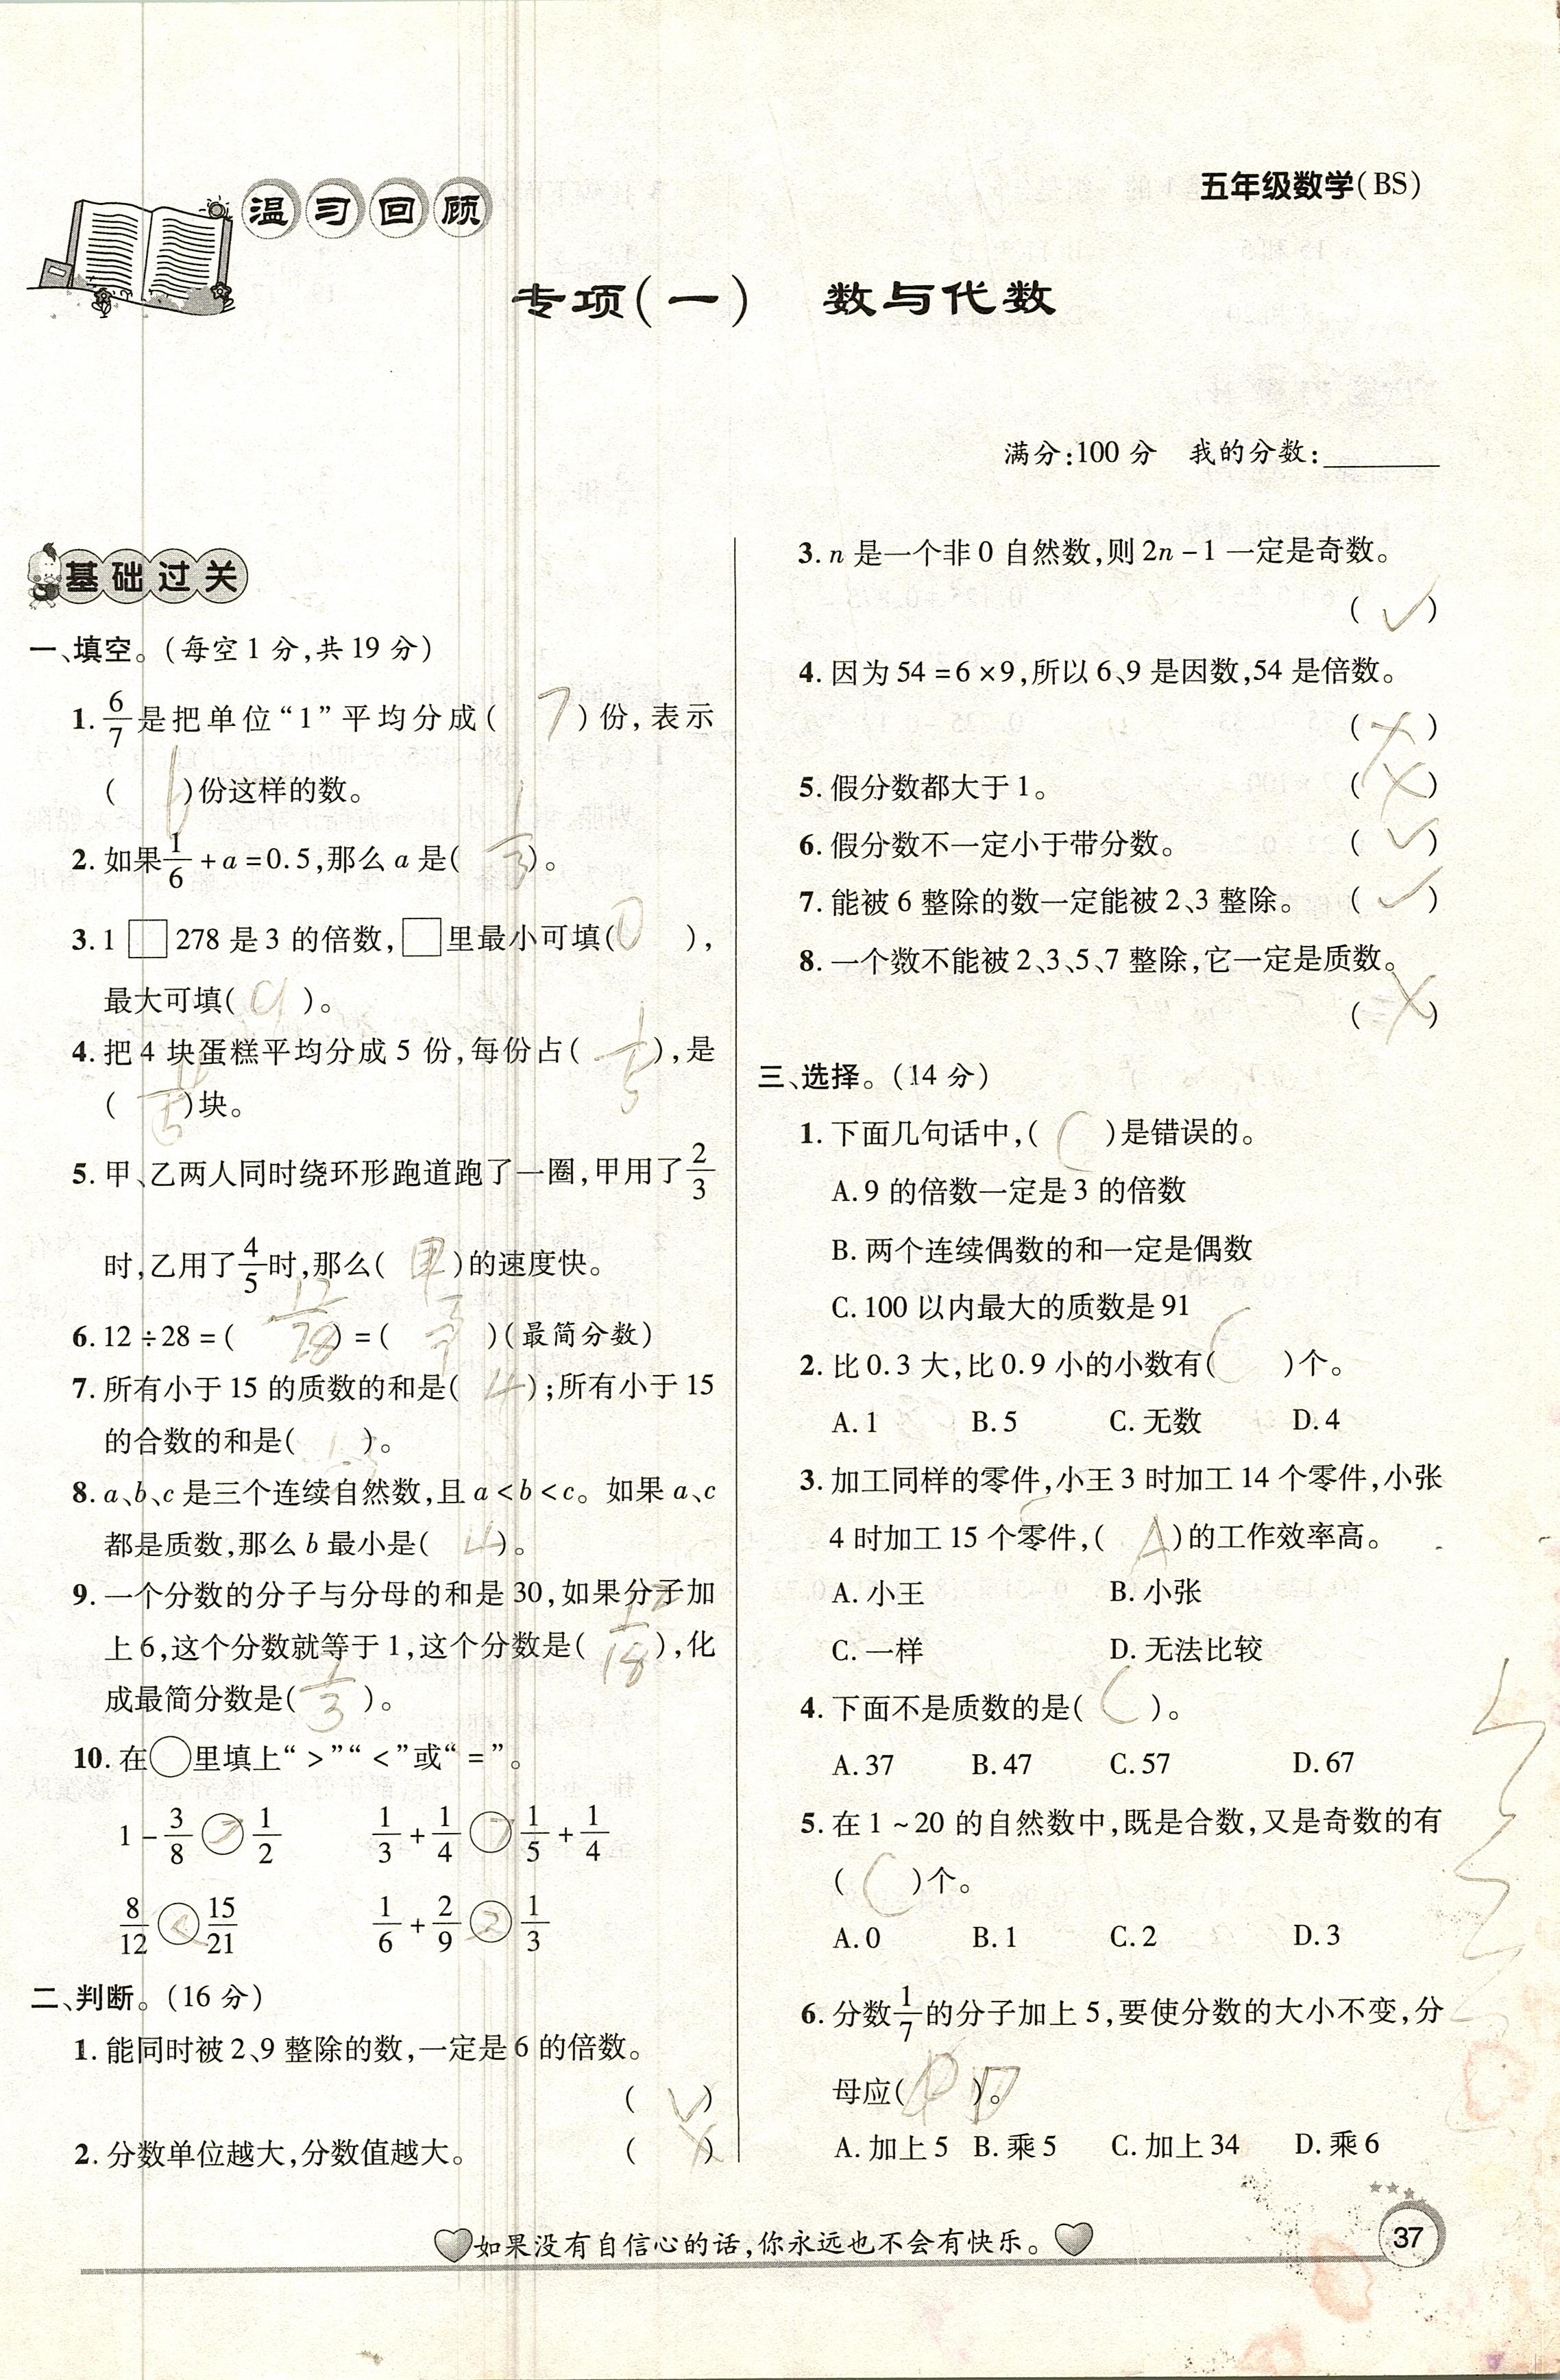 五年级数学(BS)
温习回顾
专项(一) 数与代数
满分:100 分 我的分数:
基础过关
一、填空。(每空 1 分,共 19 分)
1. 6/7 是把单位“1”平均分成( 7 )份,表示
( 6 )份这样的数。
2. 如果 1/6 + a = 0.5,那么 a 是( 1/3 )。
3. 1□278 是 3 的倍数,□里最小可填( 0 ),
最大可填( 9 )。
4. 把 4 块蛋糕平均分成 5 份,每份占( 1/5 ),是
( 4/5 )块。
5. 甲、乙两人同时绕环形跑道跑了一圈,甲用了 2/3
时,乙用了 4/5 时,那么( 甲 )的速度快。
6. 12÷28 = ( 12/28 ) = ( 3/7 )(最简分数)
7. 所有小于 15 的质数的和是( );所有小于 15
的合数的和是( )。
8. a、b、c 是三个连续自然数,且 a < b < c。如果 a、c
都是质数,那么 b 最小是( 4 )。
9. 一个分数的分子与分母的和是 30,如果分子加
上 6,这个分数就等于 1,这个分数是( 12/18 ),化
成最简分数是( /3 )。
10. 在○里填上“ > ”“ < ”或“ = ”。
1 - 3/8 > 1/2 1/3 + 1/4 > 1/5 + 1/4
8/12 < 15/21 1/6 + 2/9 > 1/3
二、判断。(16 分)
1. 能同时被 2、9 整除的数,一定是 6 的倍数。
( ✓ )
2. 分数单位越大,分数值越大。 ( × )
3. n 是一个非 0 自然数,则 2n - 1 一定是奇数。
( ✓ )
4. 因为 54 = 6 × 9,所以 6、9 是因数,54 是倍数。
( × )
5. 假分数都大于 1。 ( × )
6. 假分数不一定小于带分数。 ( ✓ )
7. 能被 6 整除的数一定能被 2、3 整除。 ( ✓ )
8. 一个数不能被 2、3、5、7 整除,它一定是质数。
( × )
三、选择。(14 分)
1. 下面几句话中,( C )是错误的。
A. 9 的倍数一定是 3 的倍数
B. 两个连续偶数的和一定是偶数
C. 100 以内最大的质数是 91
2. 比 0.3 大,比 0.9 小的小数有( C )个。
A. 1 B. 5 C. 无数 D. 4
3. 加工同样的零件,小王 3 时加工 14 个零件,小张
4 时加工 15 个零件,( A )的工作效率高。
A. 小王 B. 小张
C. 一样 D. 无法比较
4. 下面不是质数的是( C )。
A. 37 B. 47 C. 57 D. 67
5. 在 1 ~ 20 的自然数中,既是合数,又是奇数的有
( C )个。
A. 0 B. 1 C. 2 D. 3
6. 分数 1/7 的分子加上 5,要使分数的大小不变,分
母应( D )。
A. 加上 5 B. 乘 5 C. 加上 34 D. 乘 6
如果没有自信心的话,你永远也不会有快乐。
37